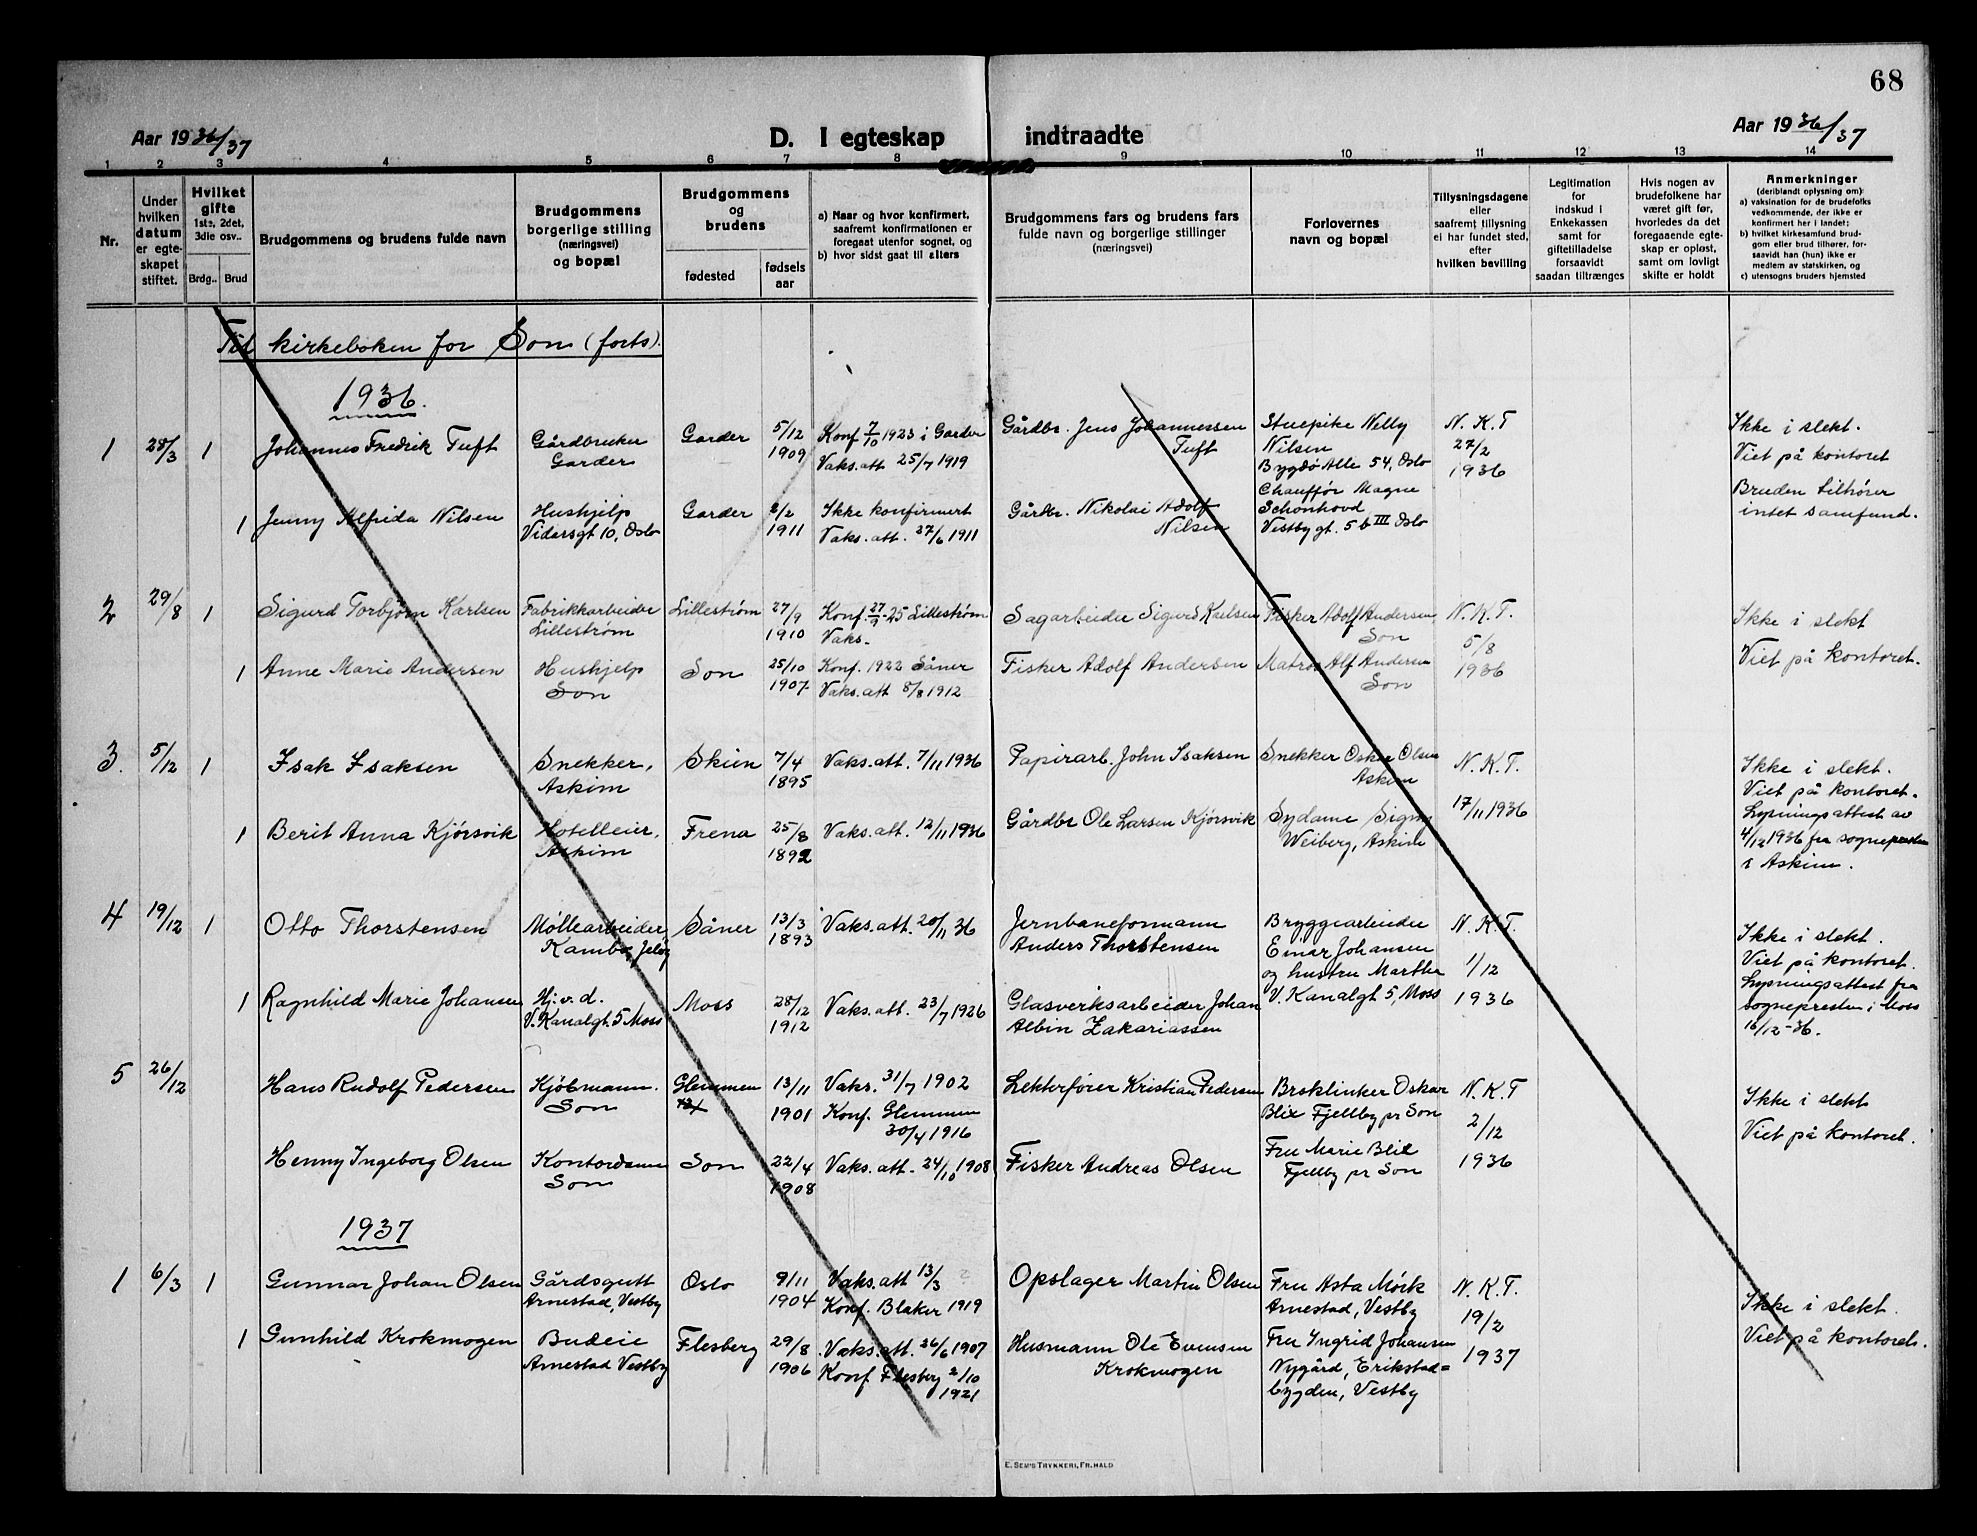 68
Aar 1936/37
D. I egteskap indtraadte
Aar 1936/37
1 2 3 4 5 6 7 8 9 10 11 12 13 14
Nr.
Under hvilken datum er egteskapet stiftet.
Hvilket gifte 1ste, 2det, 3die osv..
Brdg.. Brud
Brudgommens og brudens fulde navn
Brudgommens borgerlige stilling (næringsvei) og bopæl
Brudgommens og brudens
fødested
fødsels aar
a) Naar og hvor konfirmert, saafremt konfirmationen er foregaat utenfor sognet, og
b) hvor sidst gaat til alters
Brudgommens fars og brudens fars fulde navn og borgerlige stillinger (næringsvei)
Forlovernes navn og bopæl
Tillysningsdagene eller saafremt tillysning ei har fundet sted, efter hvilken bevilling
Legitimation for indskud i Enkekassen samt for giftetilladelse forsaavidt saadan tiltrænges
Hvis nogen av brudefolkene har været gift før, hvorledes da det foregaaende egteskap er opløst, samt om lovligt skifte er holdt
Anmerkninger
(deriblandt oplysning om):
a) vaksination for de brudefolks vedkommende, der ikke er konfirmert her i landet;
b) hvilket kirkesamfund brudgom eller brud tilhører, forsaavidt han (hun) ikke er medlem av statskirken, og
c) utensogns bruders hjemsted
Til kirkeboken for Son (forts).
1936.
1 28/3 1 Johannes Fredrik Tuft Gårdbruker Garder Garder 5/12 1909 Konf 7/10 1923 i Garder Vaks.att 25/7 1919 Gårdbr. Jens Johannessen Tuft Stuepike Nelly Nilsen Bygdø Alle 54, Oslo N.K.T 27/2 1936 Ikke i slekt. Viet på kontoret
1 Jenny Alfrida Nilsen Hushjelp Vidarsgt 10, Oslo Garder 2/2 1911 Ikke konfirmert Vaks.att. 27/6 1911 Gårdbr. Nikolai Adolf Nilsen Chauffør Magne Schönhovd Vestbygt. 5 b III Oslo Bruden tilhører intet samfund.
2 29/8 1 Sigurd Torbjørn Karlsen Fabrikkarbeider Lillestrøm Lillestrøm 27/9 1910 Konf. 27/9-25 Lillestrøm Vaks. Sagarbeider Sigurd Karlsen Fisker Adolf Andersen Son N.K.T. 5/8 1936 Ikke i slekt Viet på kontoret.
1 Anne Marie Andersen Hushjelp Son Son 25/10 1907 Konf. 1922 Såner Vaks.att 8/8 1912 Fisker Adolf Andersen Matros Alf Andersen Son
3. 5/12 1 Isak Isaksen Snekker, Askim Skien 7/4 1895 Vaks.att. 7/11 1936 Papirarb. John Isaksen Snekker Oskar Olsen Askim N.K.T. 17/11 1936 Ikke i slekt. Viet på kontoret. Lysningsattest av 4/12 1936 fra sognepresten i Askim.
1 Berit Anna Kjørsvik Hotelleier, Askim Frena 25/8 1892 Vaks.att. 12/11 1936 Gårdbr Ole Larsen Kjørsvik Sydame Signy Weiberg, Askim
4 19/12 1 Otto Thorstensen Møllearbeider Kambo, Jeløy Såner 13/3 1893 Vaks.att. 20/11 36 Jernbaneformann Anders Thorstensen Bryggearbeider Einar Johansen og hustru Martha V. Kanalgt 5, Moss N.K.T. 1/12 1936 Ikke i slekt. Viet på kontoret. Lysningsattest fra sognepresten i Moss 16/12-36.
1 Ragnhild Marie Johansen Hj.v.d. V. Kanalgt. 5 Moss Moss 28/12 1912 Vaks.att. 23/7 1926 Glasverksarbeider Johan Albin Zakariassen
5 26/12 Hans Rudolf Pedersen Kjøbmann. Son Glemmen 13/11 1901 Vaks. 31/7 1902 Konf. Glemmen 30/4 1916 Lekterfører Kristian Pedersen Broklinker Oskar Blix Fjellby pr Son N.K.T 2/12 1936 Ikke i slekt Viet på kontoret.
Henny Ingeborg Olsen Kontordame Son Son 22/4 1908 Vaks.att. 24/10 1908 Fisker Andreas Olsen Fru Marie Blix Fjellby pr Son
1937
1 6/3 1 Gunnar Johan Olsen Gårdsgutt Arnestad, Vestby Oslo 9/11 1904 Vaks.att 13/3 Konf. Blaker 1919 Opslager Martin Olsen Fru Asta Mørk Arnestad, Vestby N.K.T. 19/2 1937 Ikke i slekt. Viet på kontoret.
1 Gunhild Krokmogen Budeie Arnestad Vestby Flesberg 29/8 1906 Vaks.att. 26/6 1907 Konf Flesberg 2/10 1921 Husmann Ole Evensen Krokmogen Fru Ingrid Johansen Nygård, Erikstadbygden, Vestby
E. SEM'S TRYKKERI, FR.HALD